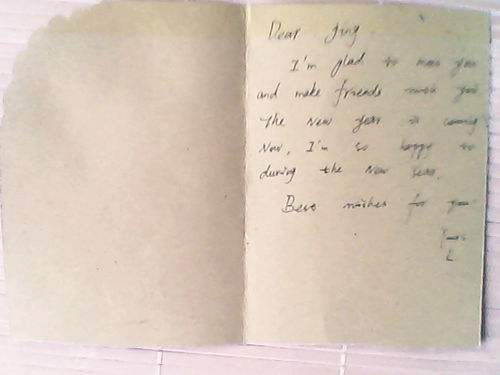 Dear Jing
I'm glad to meet you
and make friends with you
The New Year is coming
Now, I'm so happy to
during the New Year.
Best wishes for you
Yours
L